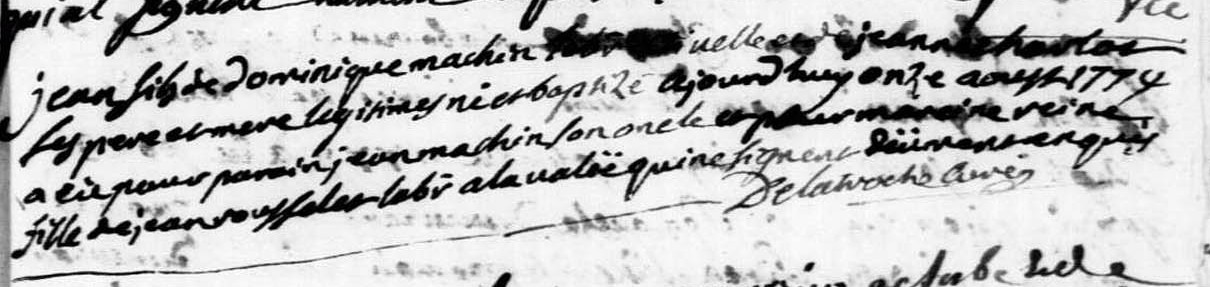 jean fils de Dominique machin labr uelle et de jeanne charlos
ses pere et mere legitimes né et baptizé ajourdhuy onze aoust 1774
a eu pour parain jean machin son oncle et pour maraine reine
fille de jean rousselet labr a la valeë qui ne signent düement enquis
Delaroche Curé